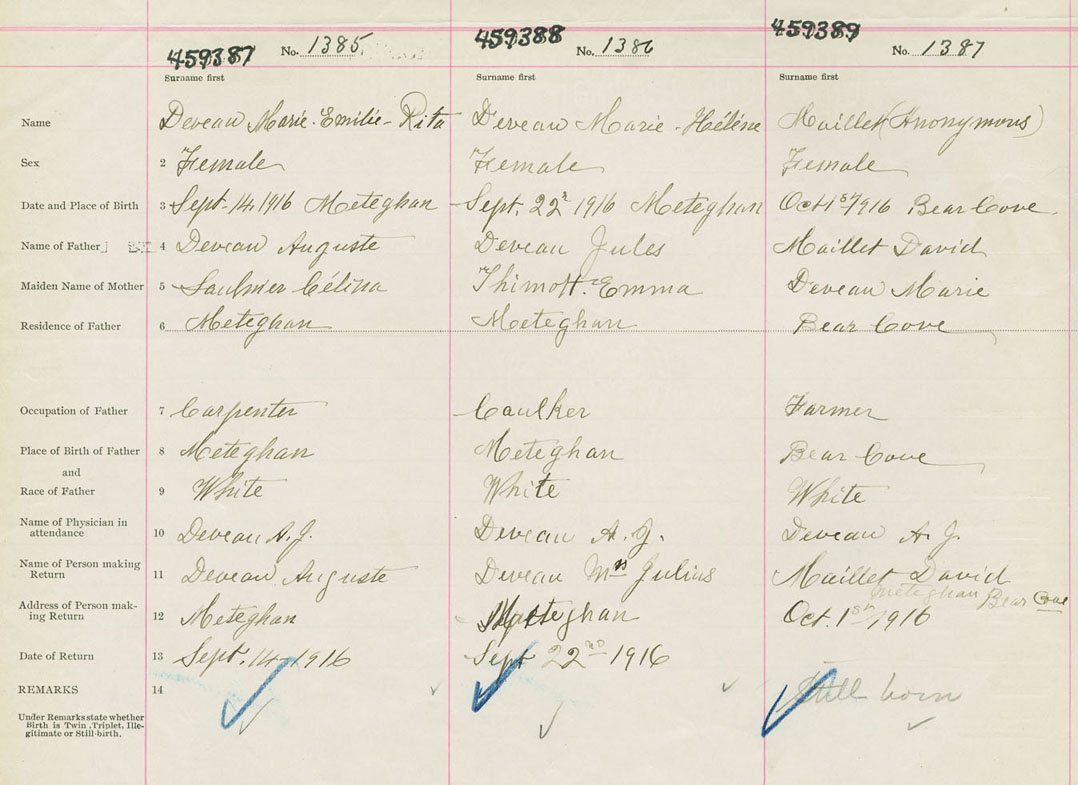 459387 No. 1385. 459388 No. 1386 459389 No. 1387
Surname first Surname first Surname first
Name Deveau Marie-Emilie-Rita Deveau Marie-Hélène Maillet (Anonymous)
Sex 2 Female Female Female
Date and Place of Birth 3 Sept. 14, 1916 Meteghan Sept. 22 1916 Meteghan Oct 1st 1916 Bear Cove.
Name of Father 4 Deveau Auguste Deveau Jules Maillet David
Maiden Name of Mother 5 Saulnier Célina Thimott. Emma Deveau Marie
Residence of Father 6 Meteghan Meteghan Bear Cove
Occupation of Father 7 Carpenter Caulker Farmer
Place of Birth of Father 8 Meteghan Meteghan Bear Cove
and
Race of Father 9 White White White
Name of Physician in
attendance 10 Deveau A. J. Deveau A. J. Deveau A. J.
Name of Person making
Return 11 Deveau Auguste Deveau Mrs Julius Maillet David
Meteghan Bear Cove
Address of Person mak-
ing Return 12 Meteghan Meteghan Oct. 1st 1916
Date of Return 13 Sept. 14-1916 Sept 22nd 1916
REMARKS 14 Still born
Under Remarks state whether
Birth is Twin, Triplet, Ille-
gitimate or Still-birth.